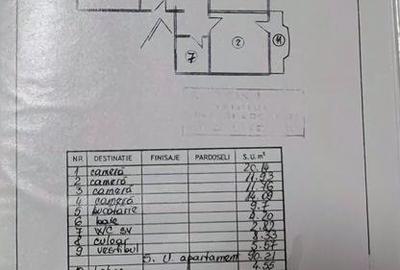 7
2
11
NR. DESTINATIE FINISAJE PARDOSELI S.U. m²
1 cameră 20.14
2 cameră 11.93
3 cameră 11.76
4 cameră 14.09
5 bucătărie 9.7
6 baie 4.20
7 WC SV 2.82
8 culoar 8.33
9 vestibul 5.67
S. U. apartament 90.21
4.56